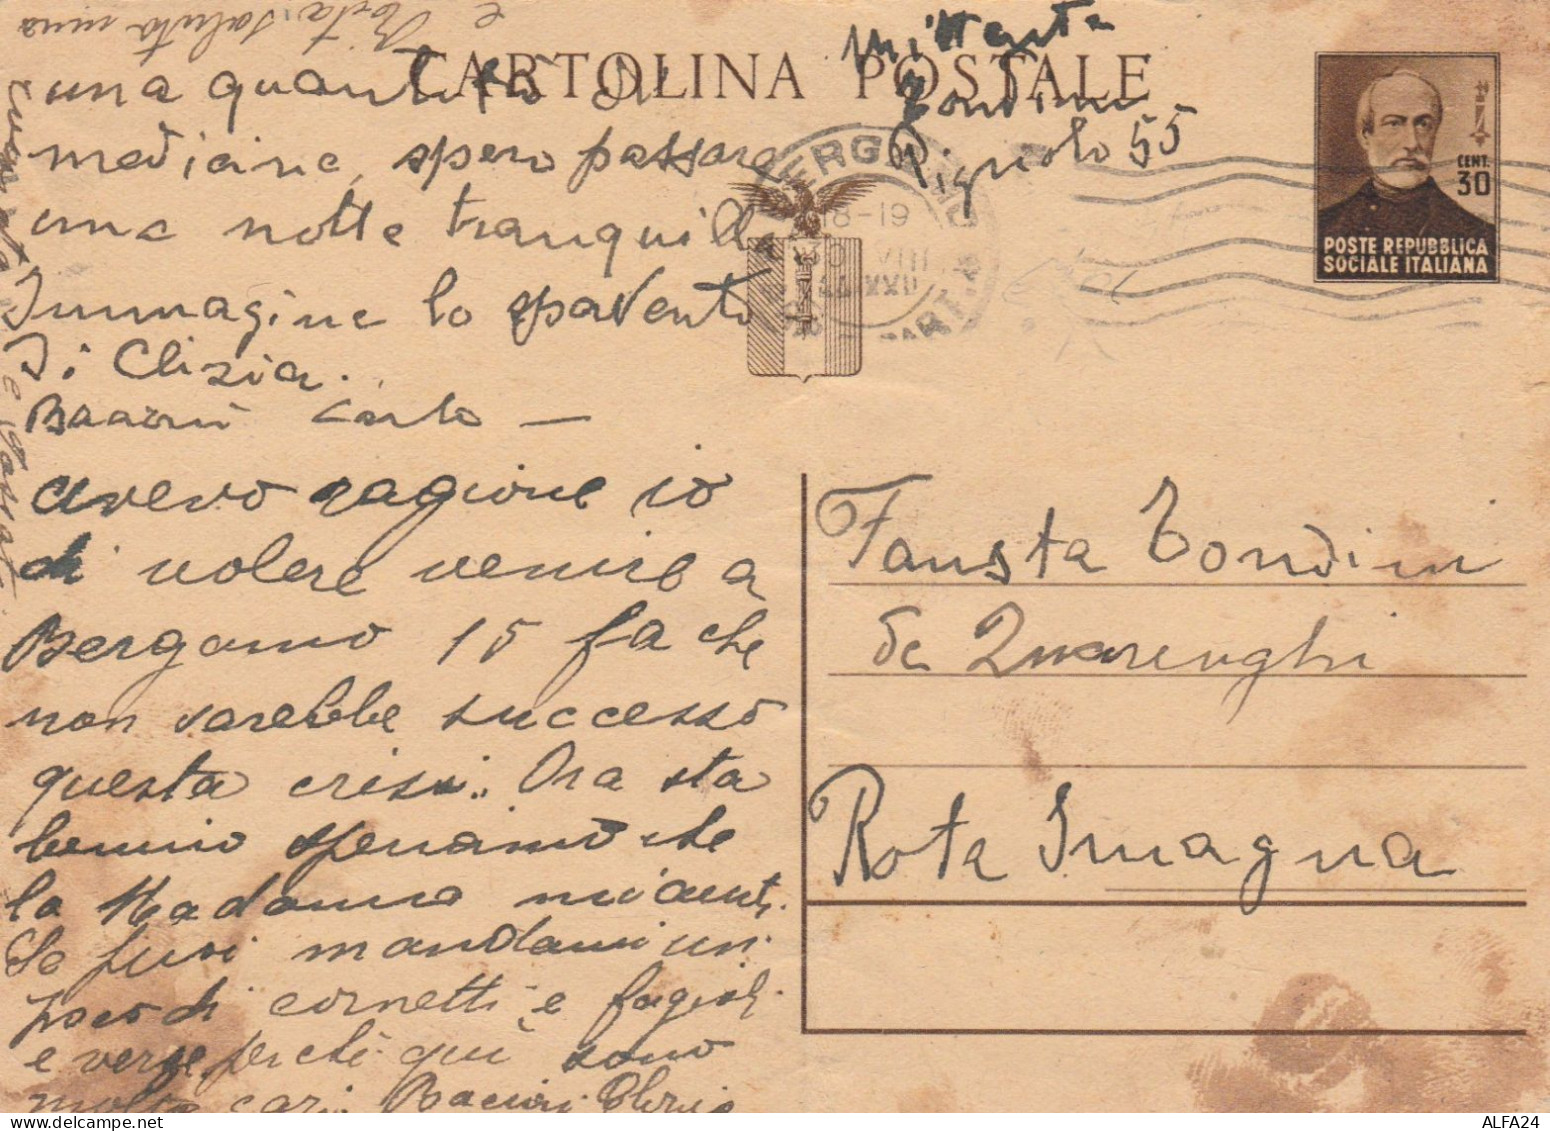 e Rita saluta
CARTOLINA POSTALE
Mittente
Tondini
Pignolo 55
una quantità di
medicine, spero passare
una notte tranquilla
Immagine lo spavento
di Clizia.
Carlo —
avevo ragione io
di volere venire a
Bergamo 15 fa che
non sarebbe successo
questa crisi. Ora sta
benino speriamo che
la Madonna mi aiuti.
Se fussi mandami un
poco di cornetti e fagioli
e verze perchè qui sono
molto cari. Clizia
BERGAMO
18-19
30 VIII
XXII
CENT.
30
POSTE REPUBBLICA
SOCIALE ITALIANA
Fausta Tondini
da Quarenghi
Rota Imagna
ALFA24